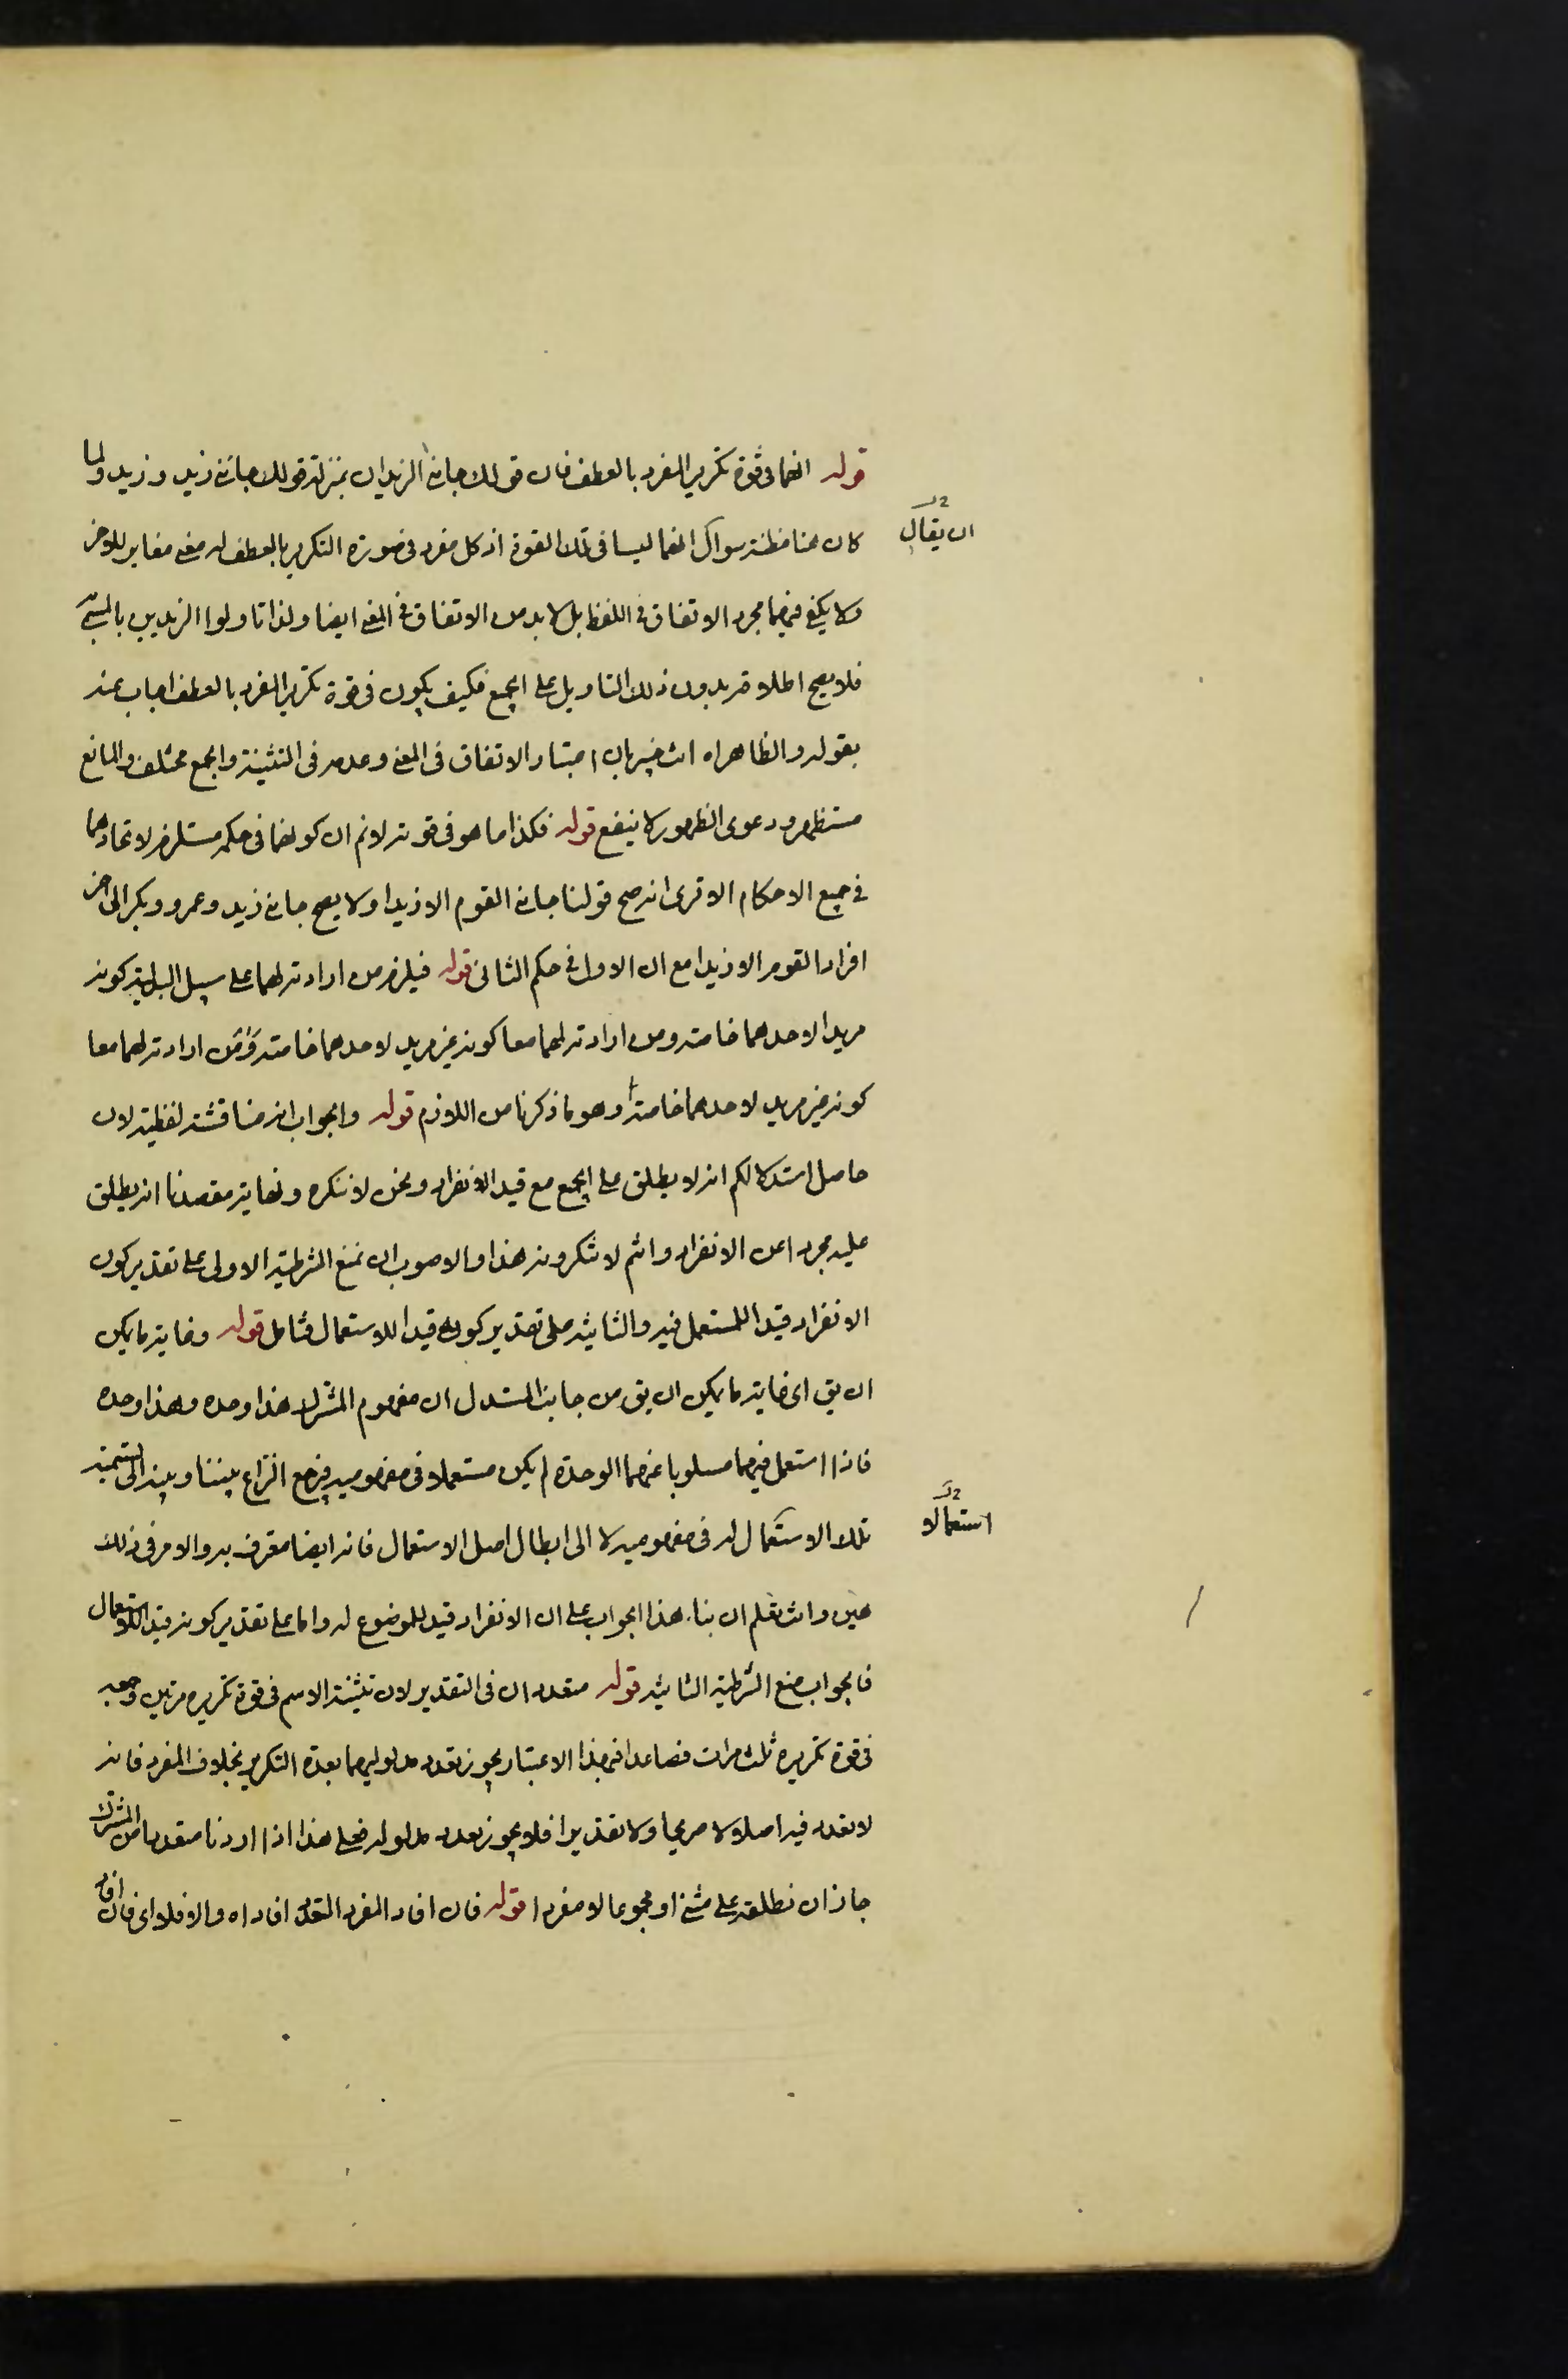 قوله انهما فى قوة تكرير المفرد بالعطف فان قولك جائنى الزيدان بمنزلة قولك جائنى زيد وزيد ولما
ان يقال
كان هنا مظنة سؤال انهما ليسا فى تلك القوة اذ كل مفرد فى صورة التكرير بالعطف له معنى مغاير للاخر
ولا يكفى فيهما مجرد الاتفاق فى اللفظ بل لا بد من الاتفاق فى المعنى ايضا ولذا تاولوا الزيدين بالمسمى
فلا يصح اطلاقه بدون ذلك التاويل على الجمع فكيف يكون فى قوة تكرير المفرد بالعطف اجاب عنه
بقوله والظاهر اه انت خبير بان اعتبار الاتفاق فى المعنى وعدمه فى التثنية والجمع مختلف والمانع
مستظهر ودعوى الظهور لا ينفع قوله فكذا ما هو فى قوته لانم ان كونهما فى حكمه مستلزم لاتحادهما
فى جميع الاحكام الا ترى انه صح قولنا جائنى القوم الا زيدا ولا يصح جائنى زيد وعمرو وبكر الى اخر
افراد القوم الا زيدا مع ان الاول فى حكم الثانى قوله فيلزم من ارادته لهما على سبيل البدلية كونه
مريدا لاحدهما خاصة ومن ارادته لهما معا كونه غير مريد لاحدهما خاصة ومن ارادته لهما معا
كونه غير مريد لاحدهما خاصة وهو ما ذكرنا من اللازم قوله والجواب انه مناقشة لفظية لان
حاصل استدلالكم انه لا يطلق على الجمع مع قيد الانفراد ونحن لا ننكره ونهاية مقصدنا انه يطلق
عليه مجردا عن الانفراد وانتم لا تنكرونه هذا والاصوب ان نمنع الشرطية الاولى على تقدير كون
الانفراد قيدا للمستعمل فيه والثانية على تقدير كونه قيدا للاستعمال فتامل قوله وغاية ما يمكن
ان يق اى غاية ما يمكن ان يق من جانب المستدل ان مفهوم المشترك هذا وحده وهذا وحده
فاذا استعمل فيهما مسلوبا عنهما الوحدة لم يكن مستعملا فى مفهوميه فيرجع النزاع بيننا وبينه الى تسمية
استعمالا
تلك الاستعمال له فى مفهوميه لا الى ابطال اصل الاستعمال فانه ايضا معترف به والامر فى ذلك
هين وانت تعلم ان بناء هذا الجواب على ان الانفراد قيد للموضوع له واما على تقدير كونه قيدا للاستعمال
فالجواب منع الشرطية الثانية قوله متعددان فى التقدير لان تثنية الاسم فى قوة تكريره مرتين وجمعه
فى قوة تكريره ثلث مرات فصاعدا فبهذا الاعتبار يجوز تعدد مدلوليهما بعدة التكرير بخلاف المفرد فانه
لا تعدد فيه اصلا ولا صريحا ولا تقديرا فلا يجوز تعدد مدلوله فعلى هذا اذا اردنا متعددا من المشترك
جاز ان نطلقه على مثنى او مجموعا لا مفردا قوله فان افاد المفرد التعدد افاداه والا فلا اى فان افاد